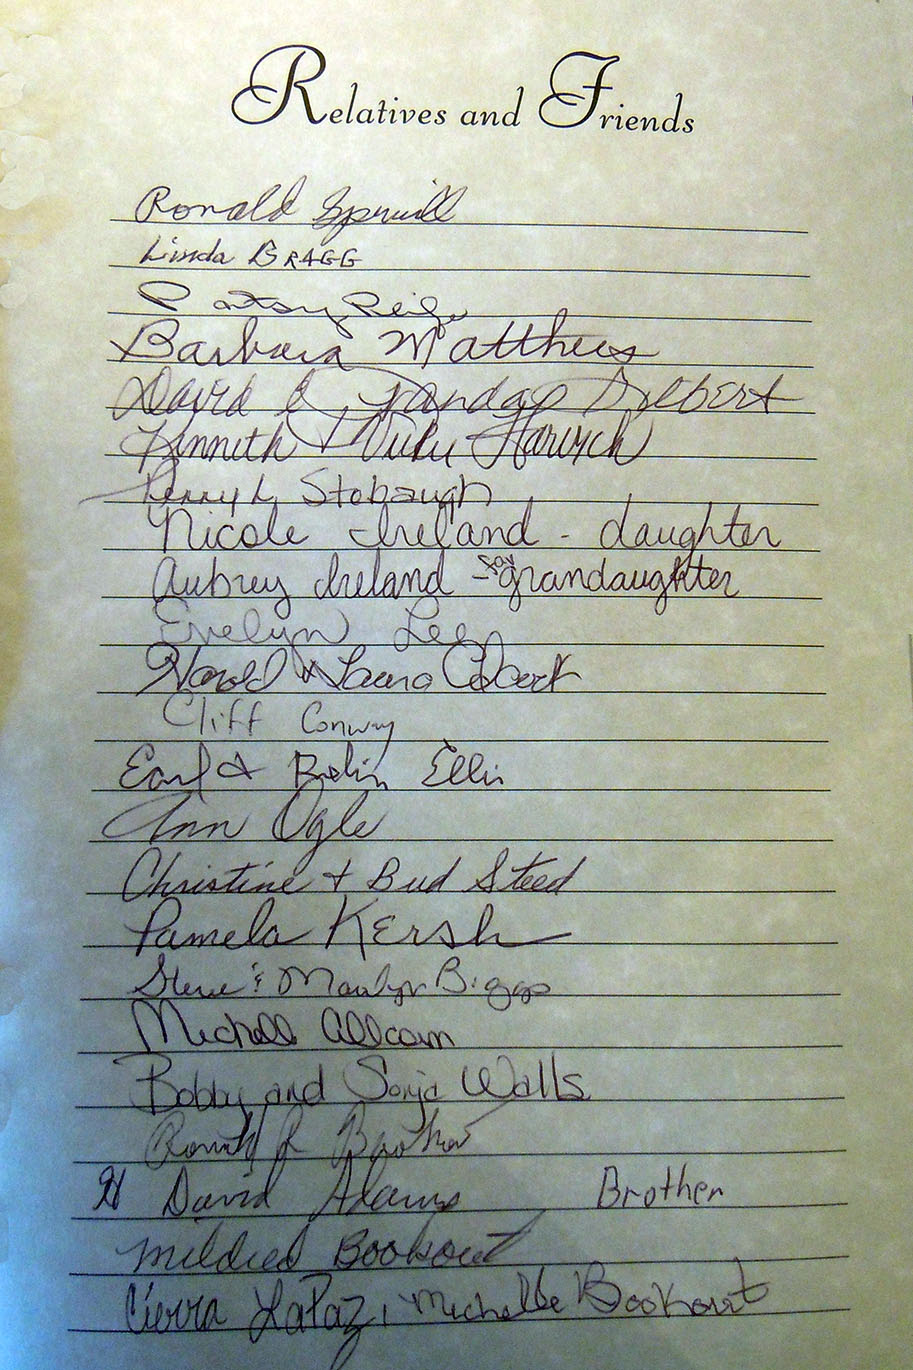 Relatives and Friends
Ronald Spruill
Linda BRAGG
Patsy
Barbara Matthews
David Gilbert
Kenneth & Vicki
Perry L Stobaugh
Nicole Ireland - daughter
Aubrey Ireland - grandaughter
Evelyn Lee
Harold & Laura
Cliff Conway
Earl & Ellis
Ann Ogle
Christine + Bud Steed
Pamela Kersh
Steve & Marilyn Biggs
Michelle Allcorn
Bobby and Sonja Walls
David Adams Brother
Mildred Bookout
Cierra LaPaz, Michelle Bookout